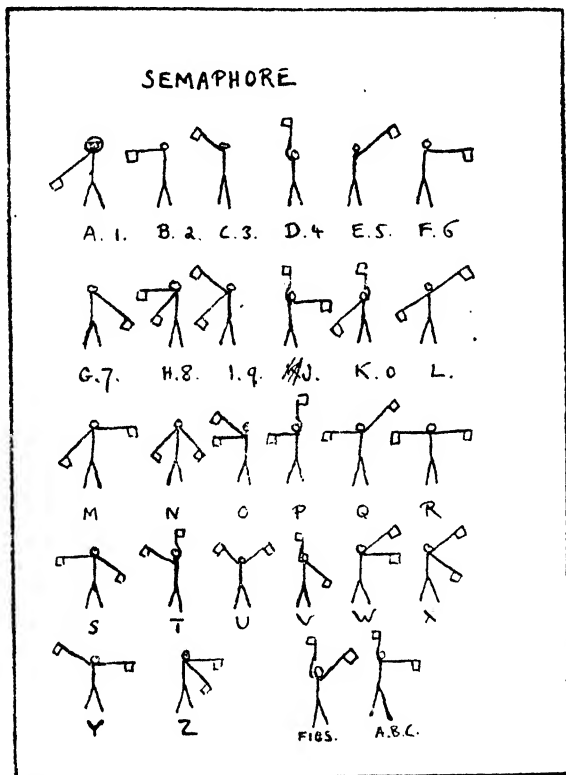 SEMAPHORE
A. 1. B. 2. C. 3. D. 4 E. 5. F. 6
G. 7. H. 8. I. 9. J. K. 0 L.
M N O P Q R
S T U V W X
Y Z FIGS. A.B.C.